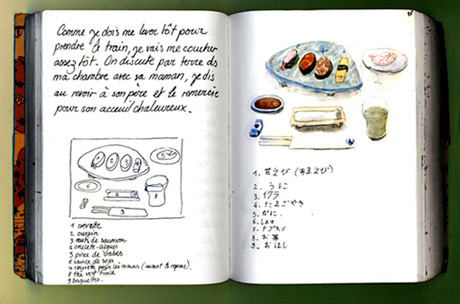 Comme je dois me lever tôt pour
prendre le train, je vais me coucher
assez tôt. On discute par terre ds
ma chambre avec sa maman, je dis
au revoir à son père et le remercie
pour son acceuil chaleureux.
1 crevette
2 oursin
3 œufs de saumon
4 omelette
5 pince de crabes
6 sauce de soja
7 serviette pour les mains (avant le repas)
8 thé vert froid
9 baguettes
1.甘えび (あまえび)
2. うに
3. イクラ
4. たまごやき
5. かに
6. しょゆ
7. ナプキン
8. お茶
9. おはし